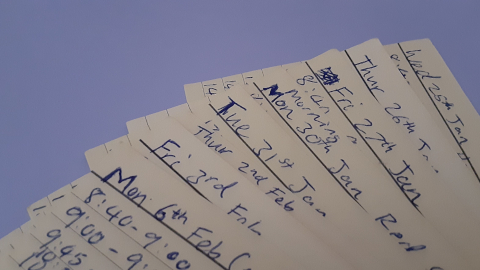 Wed 25th Jan
Thur 26th
Fri 27th Jan
8:41
morning
Mon 30th Jan Read
Tue 31st Jan
Thur 2nd Feb
Fri 3rd Feb
Mon 6th Feb (
8:40-9:00
9:00-9:
9:45